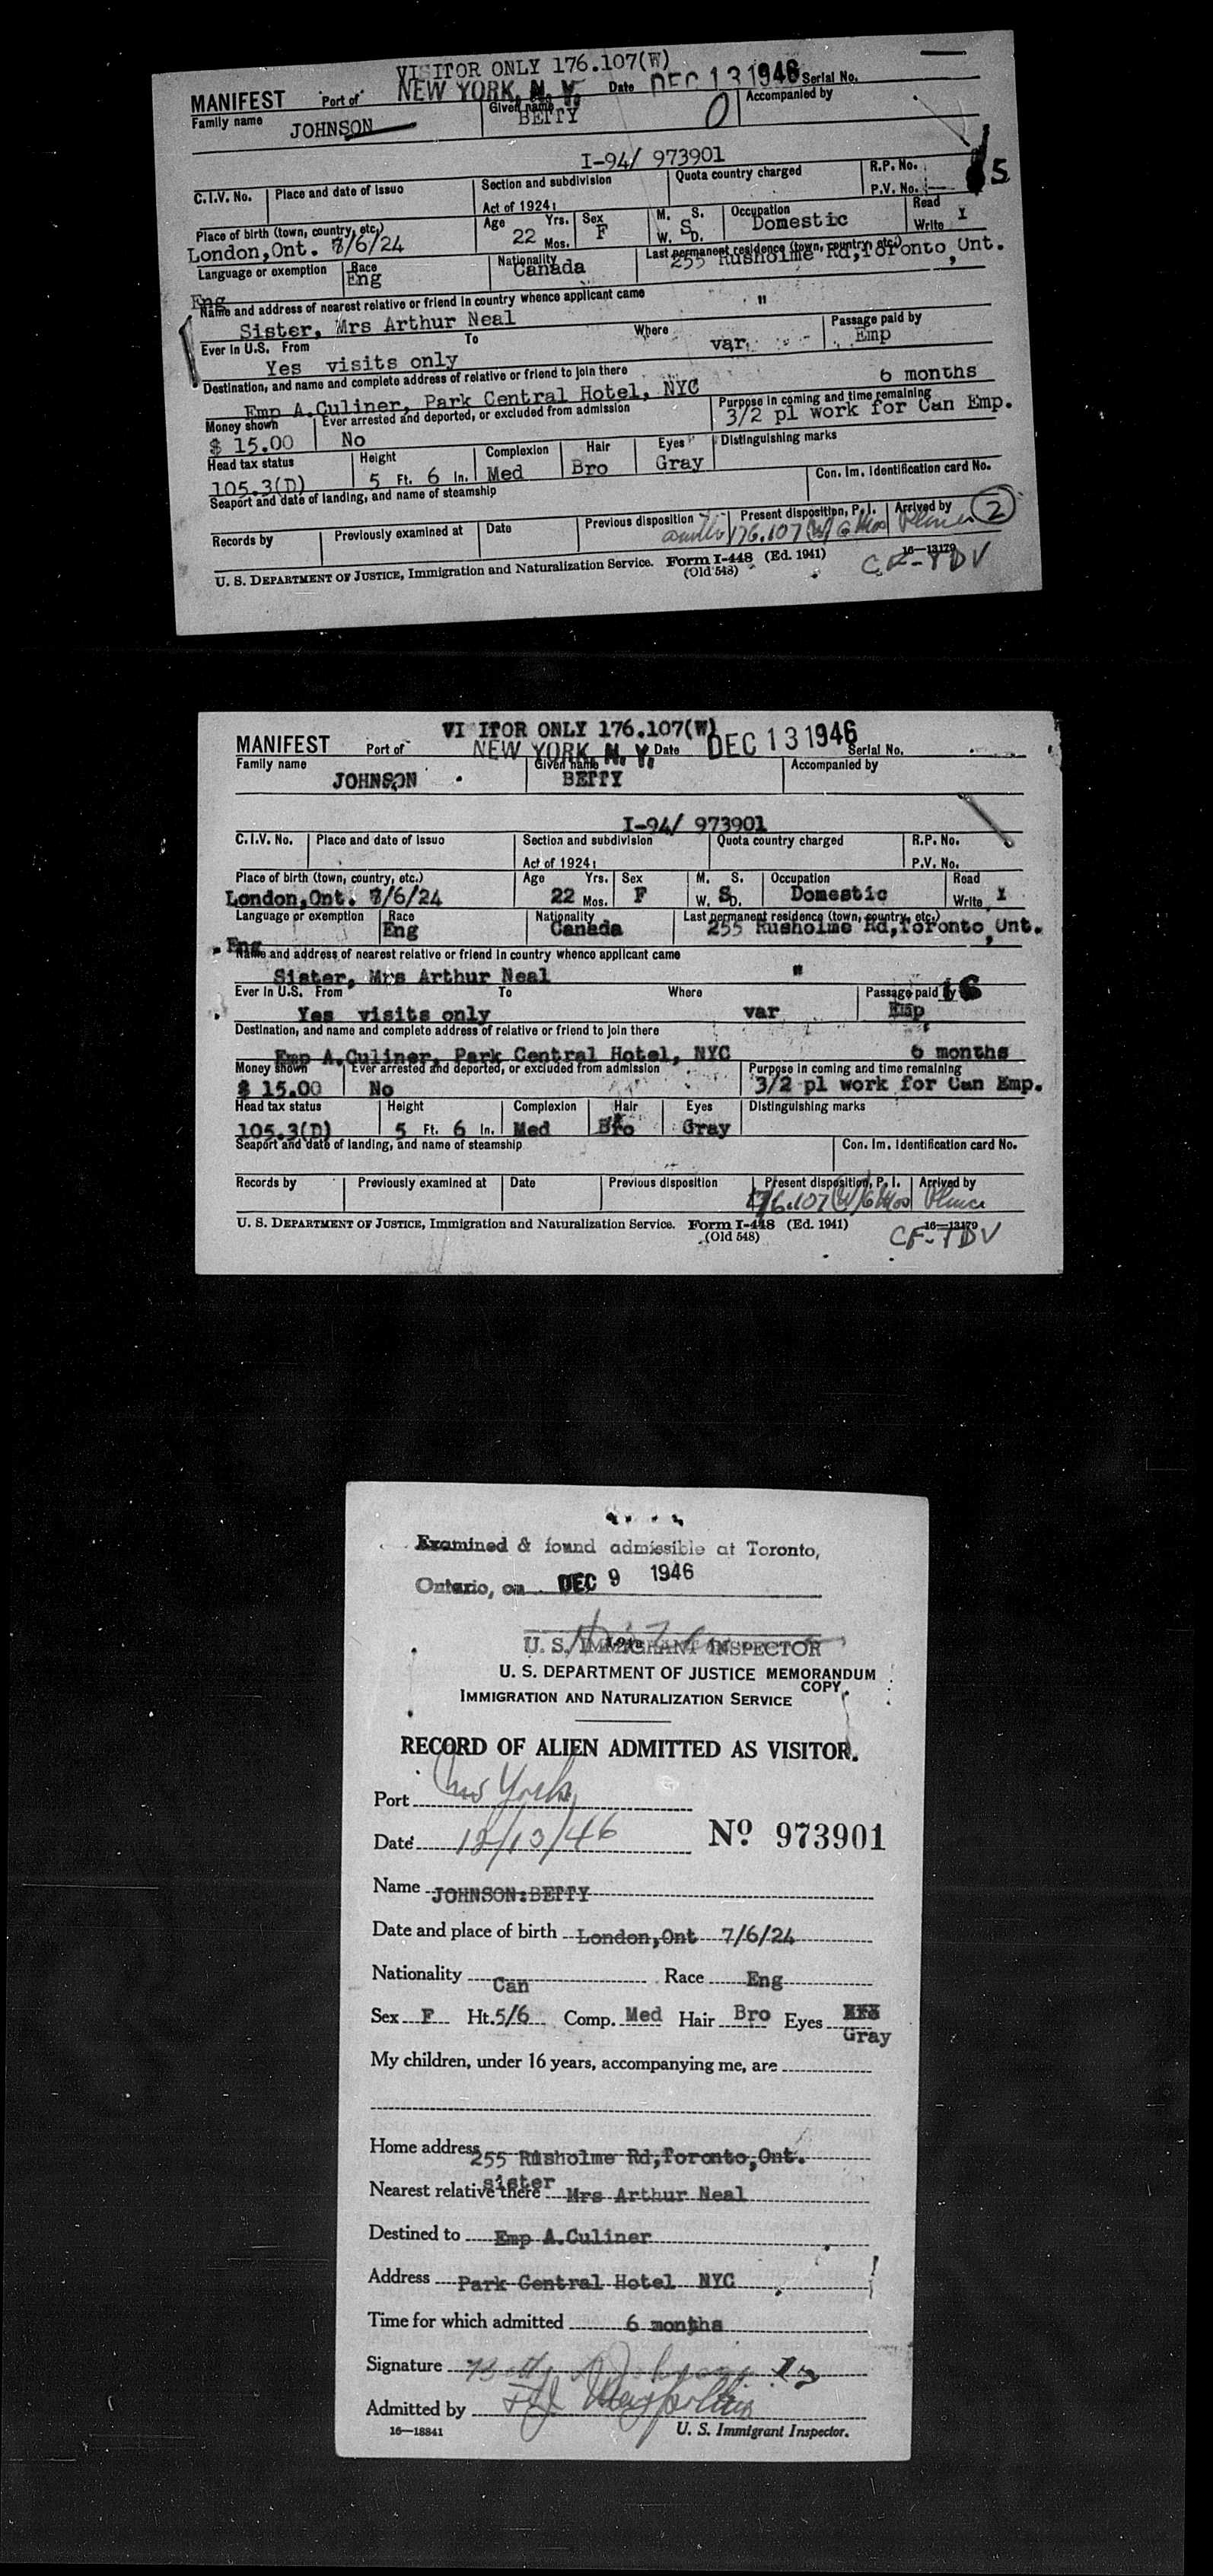 VISITOR ONLY 176.107(W)
MANIFEST Port of NEW YORK, N. Y. Date DEC 13 1946 Serial No.
Family name JOHNSON Given name BETTY 0 Accompanied by
I-94/ 973901
C.I.V. No. Place and date of issue Section and subdivision Quota country charged R.P. No.
Act of 1924: P.V. No. 5
Place of birth (town, country, etc.) Age Yrs. Sex M. S. Occupation Read
London,Ont. 7/6/24 22 Mos. F W. S D. Domestic Write X
Language or exemption Race Nationality Last permanent residence (town, country, etc.)
Eng Eng Canada 255 Rusholme Rd,Toronto,Ont.
Name and address of nearest relative or friend in country whence applicant came
Sister, Mrs Arthur Neal "
Ever in U.S. From To Where Passage paid by
Yes visits only var Emp
Destination, and name and complete address of relative or friend to join there
Emp A.Culiner, Park Central Hotel, NYC 6 months
Money shown Ever arrested and deported, or excluded from admission Purpose in coming and time remaining
$ 15.00 No 3/2 pl work for Can Emp.
Head tax status Height Complexion Hair Eyes Distinguishing marks
105.3(D) 5 Ft. 6 In. Med Bro Gray
Seaport and date of landing, and name of steamship Con. Im. Identification card No.
Records by Previously examined at Date Previous disposition Present disposition, P. I. Arrived by 2
176.107 (W) 6 Mos
U. S. DEPARTMENT OF JUSTICE, Immigration and Naturalization Service. Form I-448 (Ed. 1941) 16—13179
(Old 548) CF-TDV
VI ITOR ONLY 176.107(W)
MANIFEST Port of NEW YORK, N. Y. Date DEC 13 1946 Serial No.
Family name JOHNSON Given name BETTY Accompanied by
I-94/ 973901
C.I.V. No. Place and date of issue Section and subdivision Quota country charged R.P. No.
Act of 1924: P.V. No.
Place of birth (town, country, etc.) Age Yrs. Sex M. S. Occupation Read
London,Ont. 7/6/24 22 Mos. F W. S D. Domestic Write X
Language or exemption Race Nationality Last permanent residence (town, country, etc.)
Eng Eng Canada 255 Rusholme Rd,Toronto,Ont.
Name and address of nearest relative or friend in country whence applicant came
Sister, Mrs Arthur Neal "
Ever in U.S. From To Where Passage paid by
Yes visits only var Emp
Destination, and name and complete address of relative or friend to join there
Emp A.Culiner, Park Central Hotel, NYC 6 months
Money shown Ever arrested and deported, or excluded from admission Purpose in coming and time remaining
$ 15.00 No 3/2 pl work for Can Emp.
Head tax status Height Complexion Hair Eyes Distinguishing marks
105.3(D) 5 Ft. 6 In. Med Bro Gray
Seaport and date of landing, and name of steamship Con. Im. Identification card No.
Records by Previously examined at Date Previous disposition Present disposition, P. I. Arrived by
176.107 (W) 6 Mos
U. S. DEPARTMENT OF JUSTICE, Immigration and Naturalization Service. Form I-448 (Ed. 1941) 16—13179
(Old 548) CF-TDV
Examined & found admissible at Toronto,
Ontario, on DEC 9 1946
U. S. IMMIGRANT INSPECTOR
U. S. DEPARTMENT OF JUSTICE MEMORANDUM
COPY.
IMMIGRATION AND NATURALIZATION SERVICE
RECORD OF ALIEN ADMITTED AS VISITOR.
Port New York
Date 12/13/46 No 973901
Name JOHNSON:BETTY
Date and place of birth London,Ont 7/6/24
Nationality Can Race Eng
Sex F Ht. 5/6 Comp. Med Hair Bro Eyes Gray
My children, under 16 years, accompanying me, are
Home address 255 Rusholme Rd,Toronto,Ont.
Nearest relative there sister Mrs Arthur Neal
Destined to Emp A.Culiner
Address Park Central Hotel NYC
Time for which admitted 6 months
Signature Betty Johnson
Admitted by
16—18841 U. S. Immigrant Inspector.